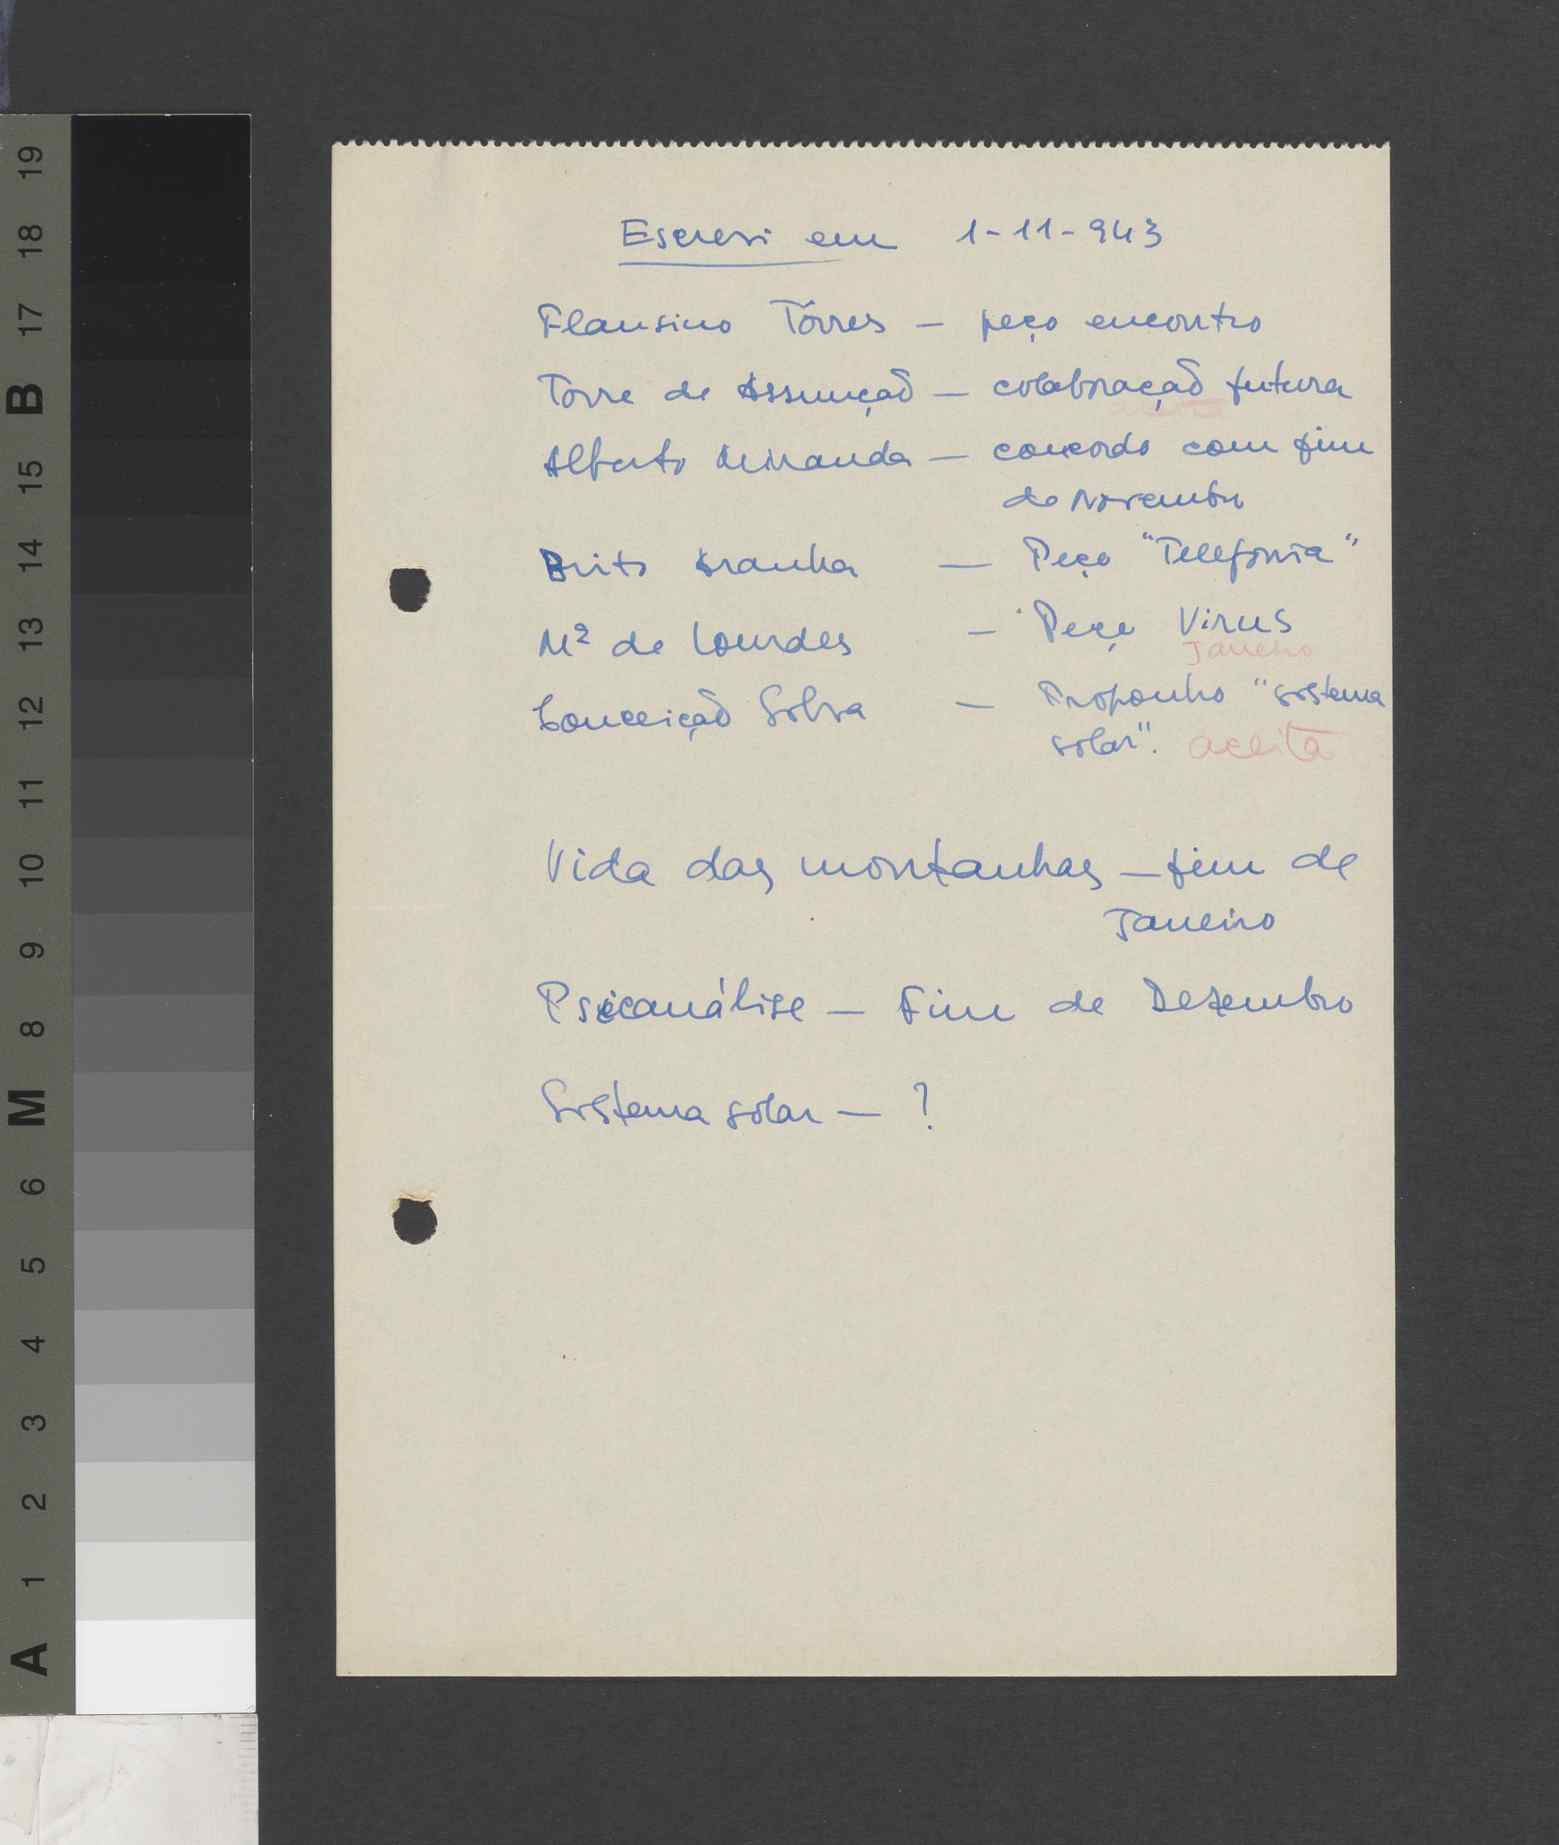 Escrevi em 1-11-943
Flausino Tôrres – peço encontro
Torre de Assunção – colaboração futura
aceita
Alberto Miranda – concordo com fim
de Novembro
Brito Aranha – Peço "Telefonia"
Mª de Lourdes – Peço Virus
Janeiro
Conceição Silva – Proponho "sistema
solar". aceita
Vida das montanhas – fim de
Janeiro
Psicanálise – Fim de Dezembro
Sistema solar – ?
19
18
17
B
15
14
13
12
11
10
9
8
M
6
5
4
3
2
1
A